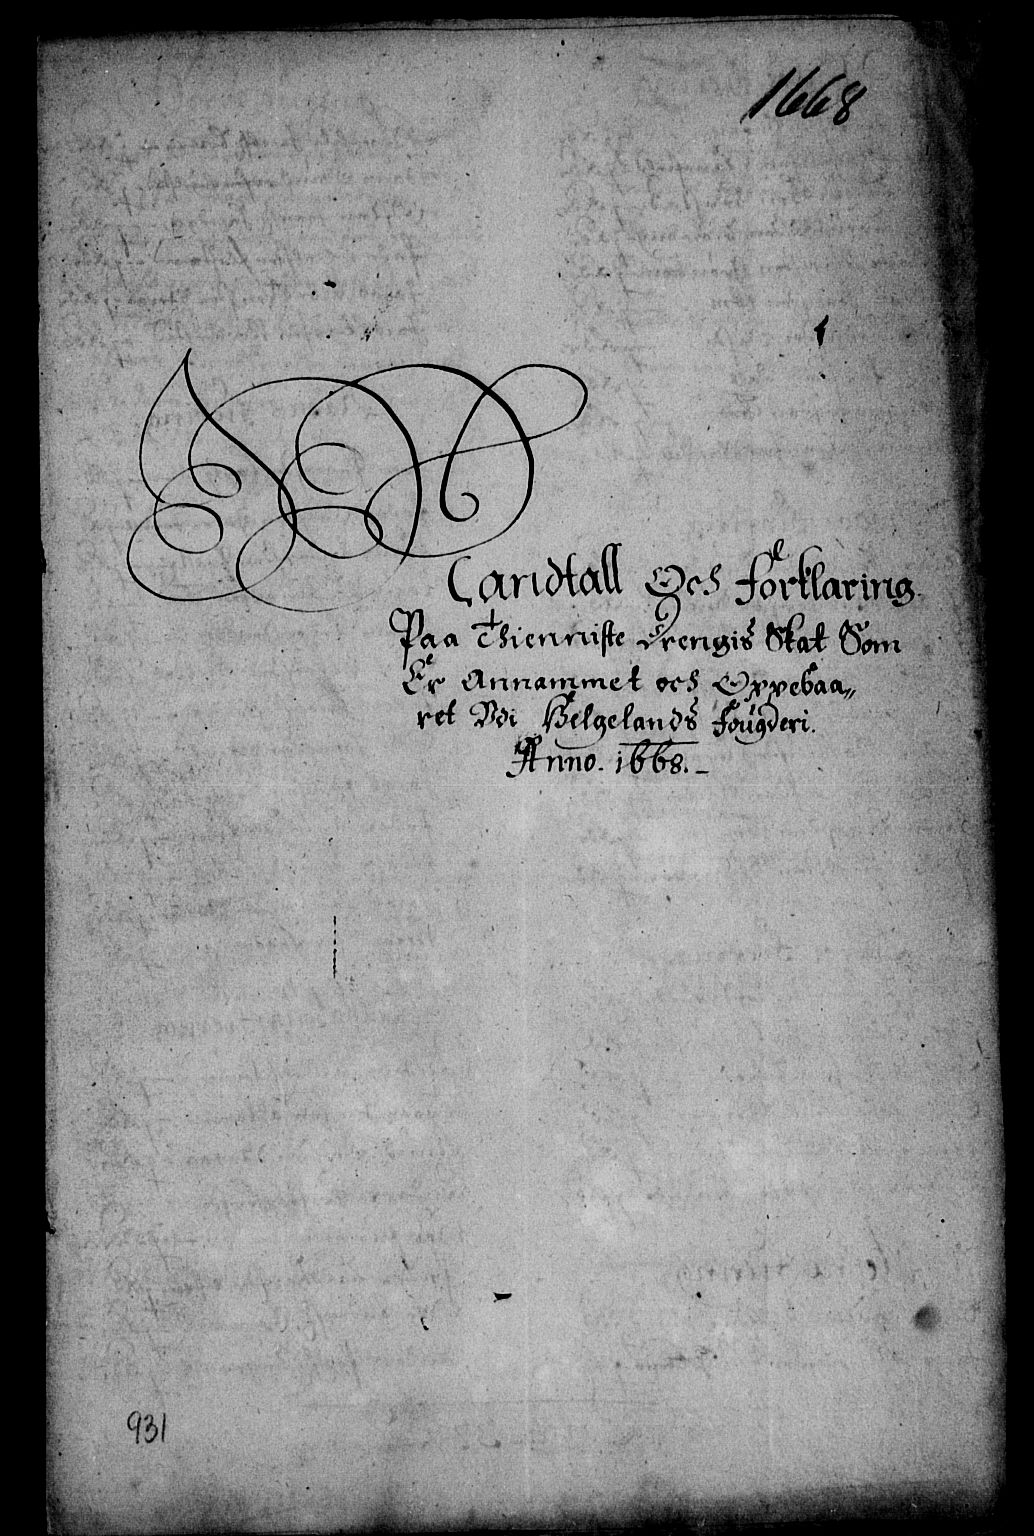 1668
Mandtall Och Forklaring
Paa Thienniste Drengis Skat Som
Er Annammet och Oppebaa„
ret Vdi Helgelands fougderi.
Anno. 1668.–
931